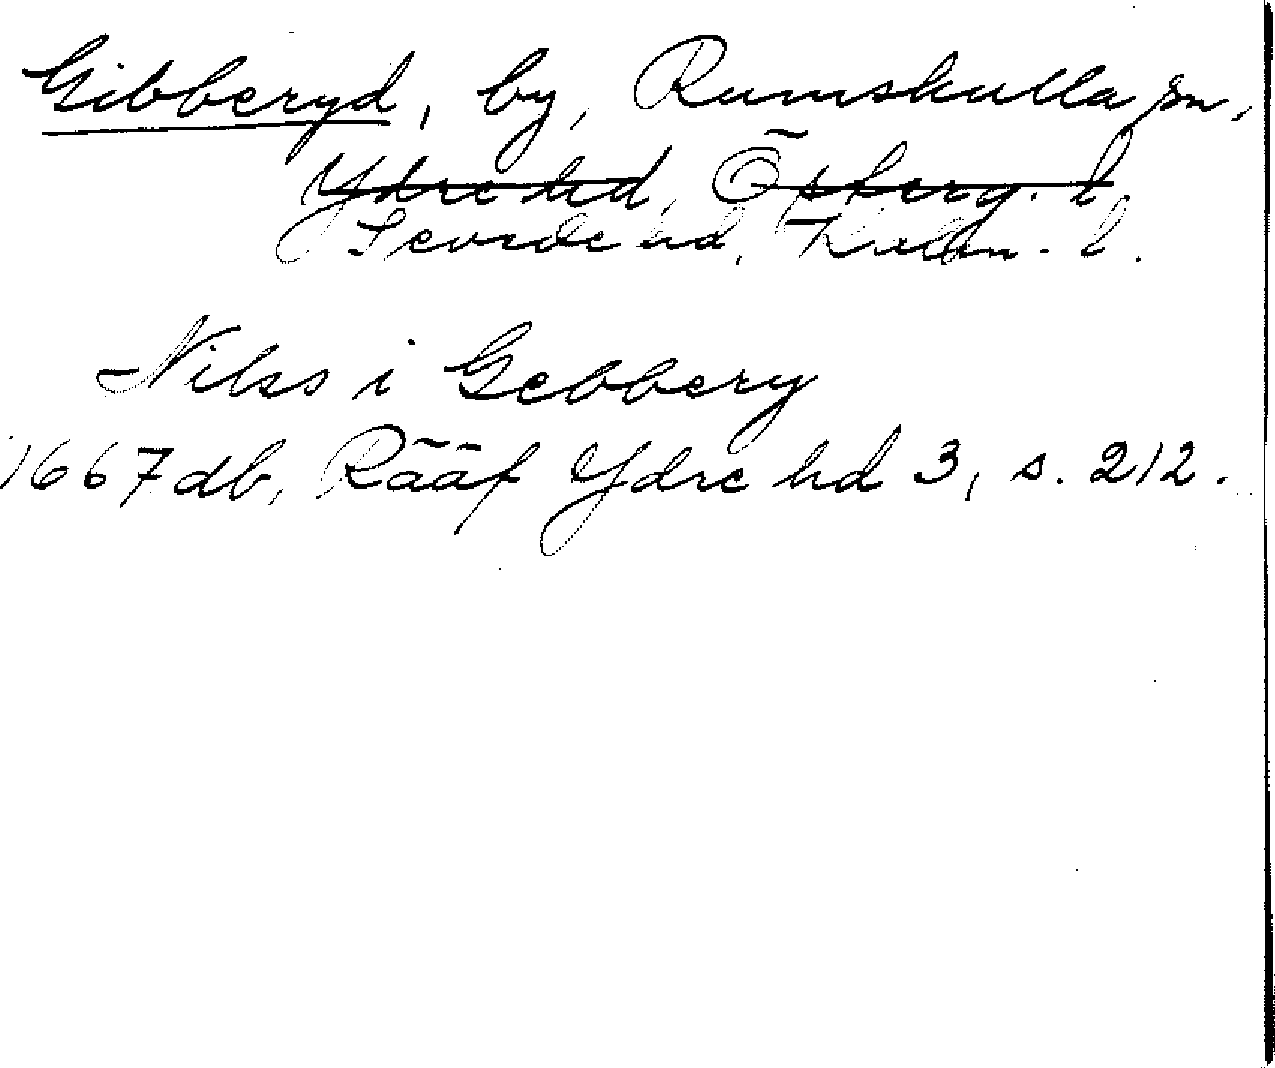 Gibberyd, by, Rumskulla sn,
Ydre hd, Östergl. l.
Sevede hd, Kalm. l.
Nilss i Gebbery
1667 db, Rääf Ydre hd 3, s. 212.